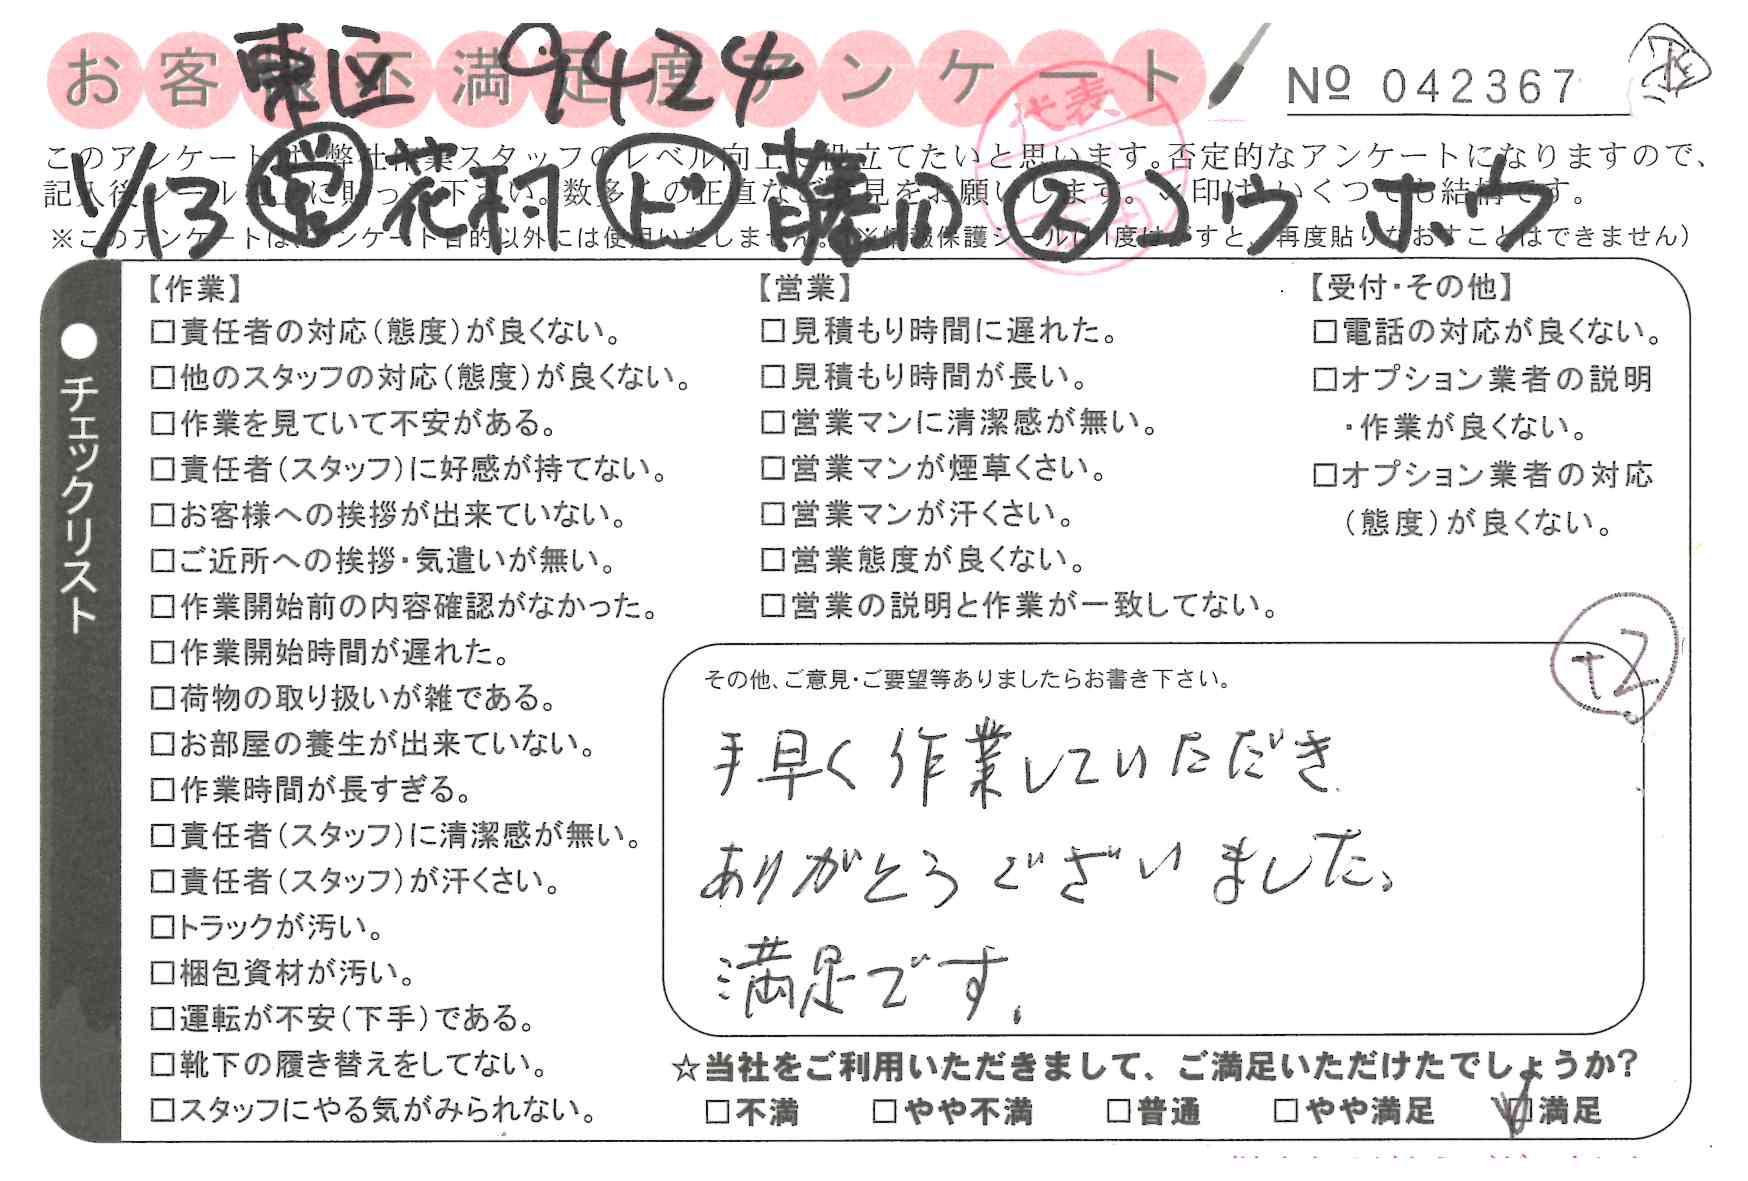 お客様不満足度アンケート
東区 9424
No 042367
代表
このアンケートは、弊社作業スタッフのレベル向上に役立てたいと思います。否定的なアンケートになりますので、
記入後シールを上に貼って下さい。数多くの正直なご意見をお願いします。✓印は、いくつでも結構です。
1/13 営 花村 ド 藤川 ス コウ ホウ
※このアンケートは、アンケート目的以外には使用いたしません。(※情報保護シールは1度はがすと、再度貼りなおすことはできません)
●チェックリスト
【作業】
□責任者の対応(態度)が良くない。
□他のスタッフの対応(態度)が良くない。
□作業を見ていて不安がある。
□責任者(スタッフ)に好感が持てない。
□お客様への挨拶が出来ていない。
□ご近所への挨拶・気遣いが無い。
□作業開始前の内容確認がなかった。
□作業開始時間が遅れた。
□荷物の取り扱いが雑である。
□お部屋の養生が出来ていない。
□作業時間が長すぎる。
□責任者(スタッフ)に清潔感が無い。
□責任者(スタッフ)が汗くさい。
□トラックが汚い。
□梱包資材が汚い。
□運転が不安(下手)である。
□靴下の履き替えをしてない。
□スタッフにやる気がみられない。
【営業】
□見積もり時間に遅れた。
□見積もり時間が長い。
□営業マンに清潔感が無い。
□営業マンが煙草くさい。
□営業マンが汗くさい。
□営業態度が良くない。
□営業の説明と作業が一致してない。
【受付・その他】
□電話の対応が良くない。
□オプション業者の説明
・作業が良くない。
□オプション業者の対応
(態度)が良くない。
その他、ご意見・ご要望等ありましたらお書き下さい。
+2
手早く作業していただき
ありがとうございました。
満足です。
☆当社をご利用いただきまして、ご満足いただけたでしょうか?
□不満 □やや不満 □普通 □やや満足 ☑満足